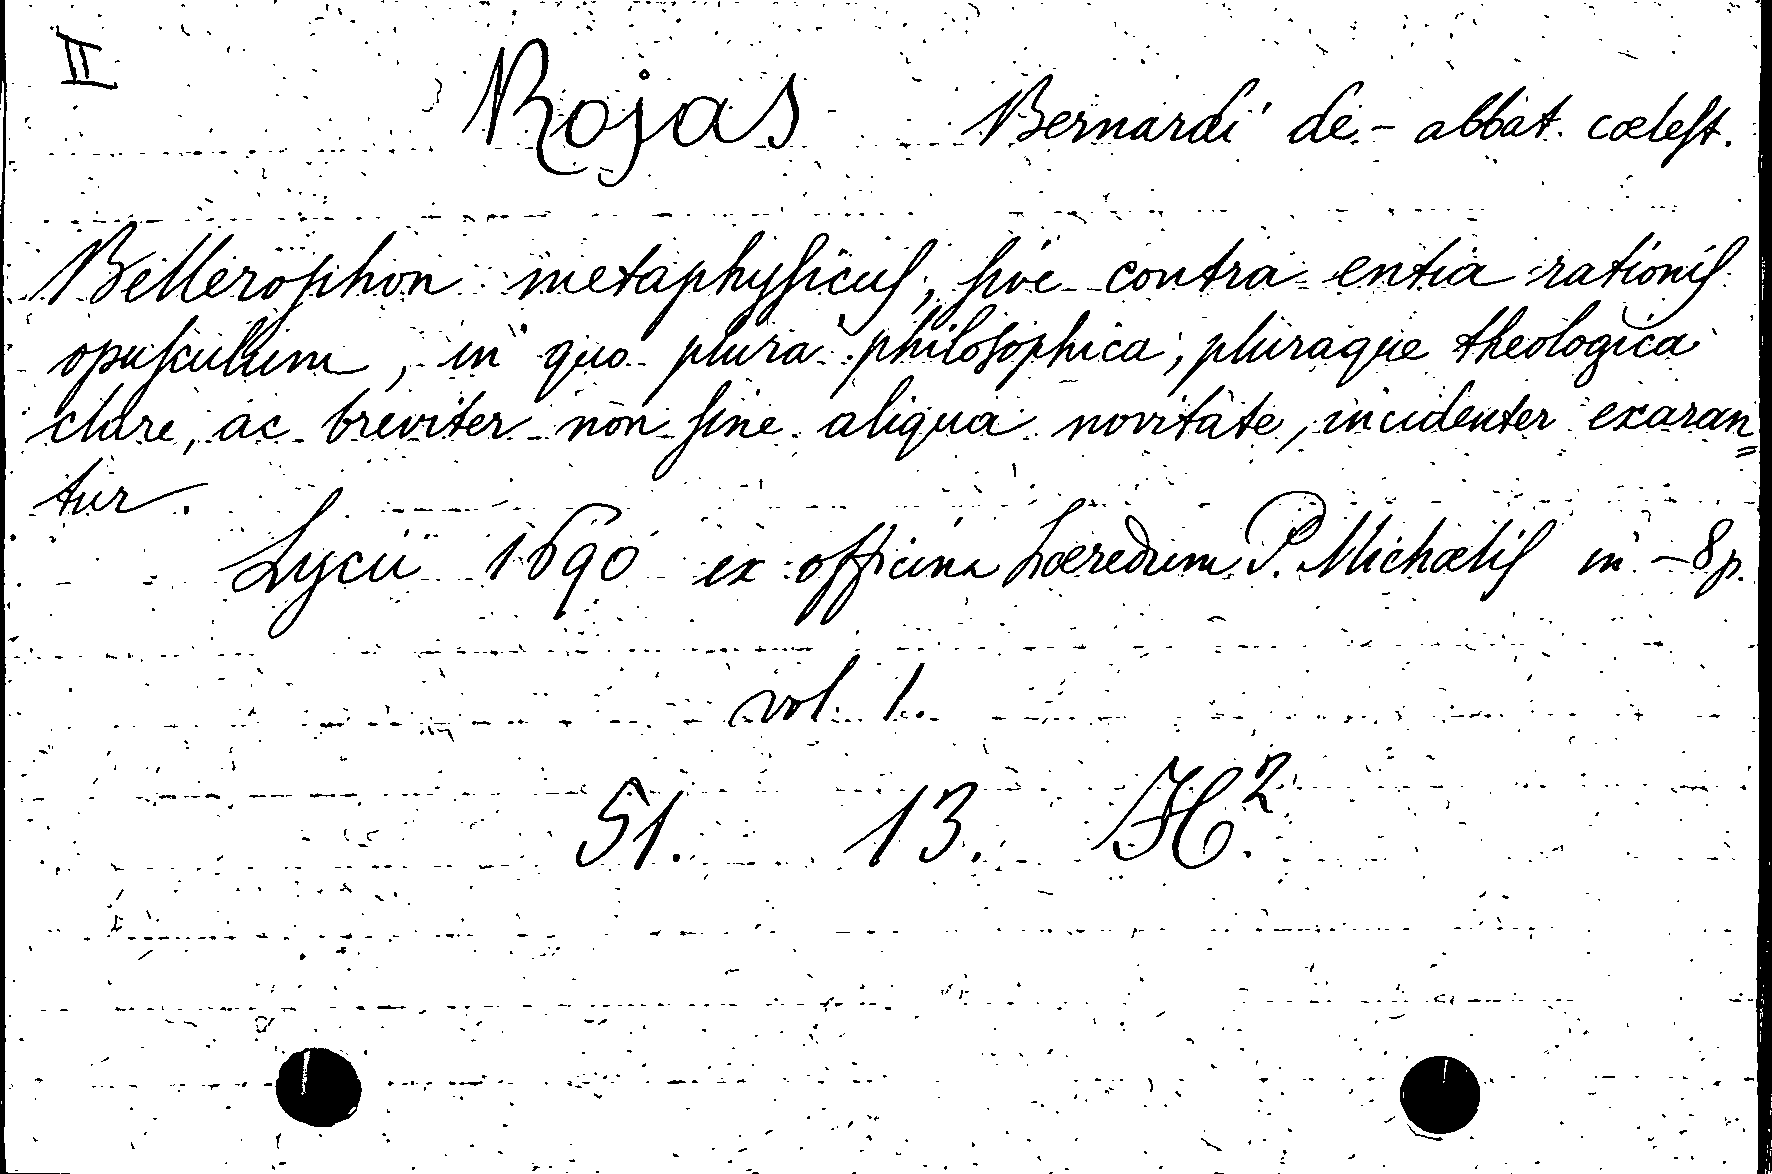 II
Rojas Bernardi de - abbat. cœlest.
Bellerophon metaphysicus, sive contra entia rationis
opusculum, in quo plura philosophica, pluraque theologica
clare, ac breviter non sine aliqua novitate, incidenter exaran=
tur.
Lycii 1690 ex officina hæredum P. Michælis in - 8 p.
vol. 1.
51. 13. H².